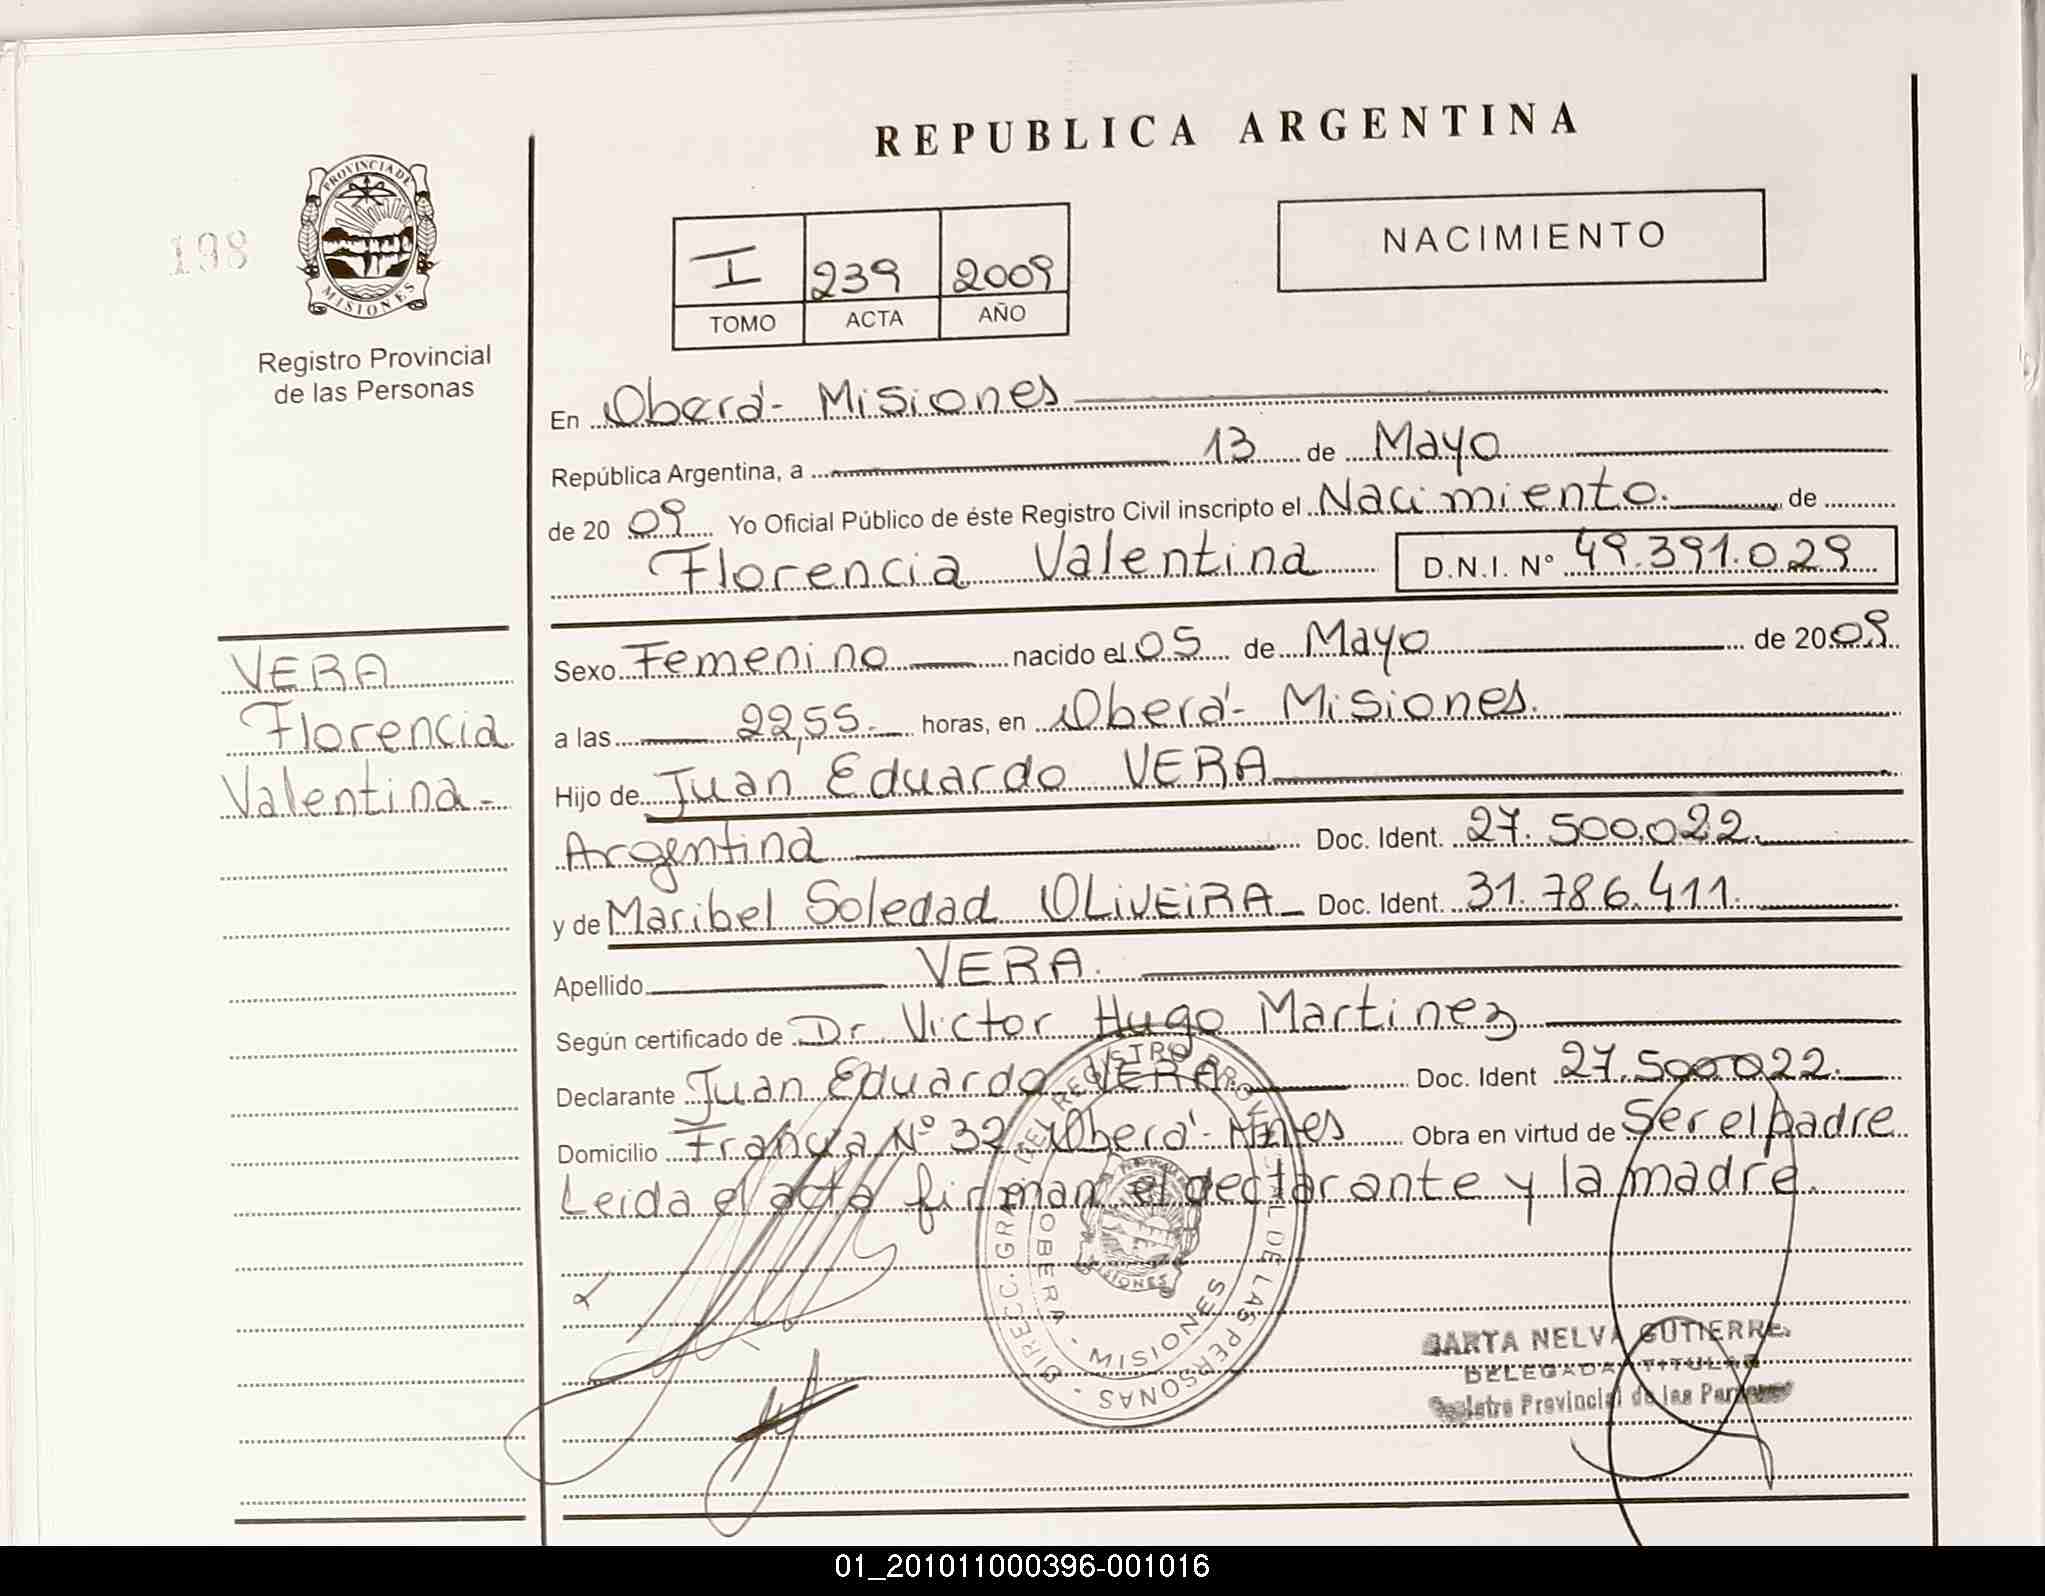 REPUBLICA ARGENTINA
198
PROVINCIA DE
MISIONES
Registro Provincial
de las Personas
I 239 2009
TOMO ACTA AÑO
NACIMIENTO
En Oberá - Misiones
República Argentina, a 13 de Mayo
de 20 09 Yo Oficial Público de éste Registro Civil inscripto el Nacimiento. de
Florencia Valentina D.N.I. Nº 49.391.029
VERA
Florencia
Valentina -
Sexo Femenino nacido el 05 de Mayo de 2009
a las 22,55.- horas, en Oberá - Misiones.
Hijo de Juan Eduardo VERA
Argentina Doc. Ident. 27.500.022.
y de Maribel Soledad OLIVEIRA Doc. Ident. 31.786.411.
Apellido VERA.
Según certificado de Dr. Victor Hugo Martinez
Declarante Juan Eduardo VERA. Doc. Ident 27.500022.
Domicilio Francia Nº 32 Oberá - Mnes Obra en virtud de Ser el padre
Leida el acta firman el declarante y la madre.
DIRECC. GRAL. DEL REGISTRO PROVINCIAL DE LAS PERSONAS
OBERA - MISIONES
MISIONES
NELVA
DELEGADA TITULAR
Registro Provincial de las Personas
01_201011000396-001016